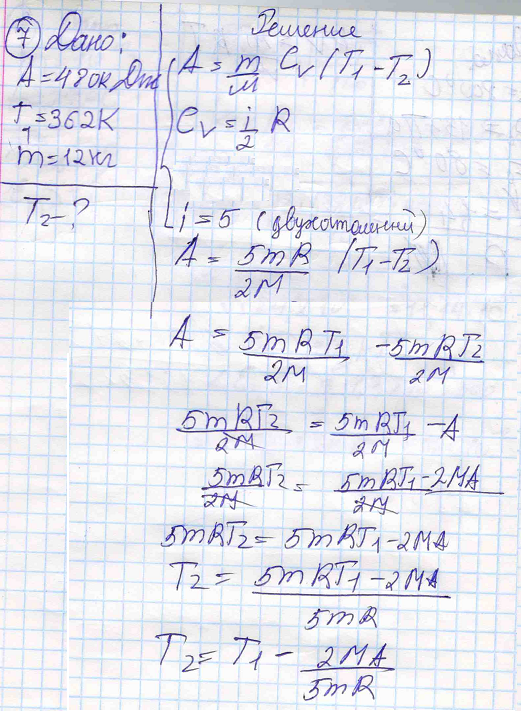 7 Дано:
A = 480 кДж
T₁ = 362 K
m = 12 кг
T₂ - ?
Решение
A = m/M Cᵥ (T₁ - T₂)
Cᵥ = i/2 R
i = 5 (двухатомный)
A = 5mR/2M (T₁ - T₂)
A = 5mRT₁/2M - 5mRT₂/2M
5mRT₂/2M = 5mRT₁/2M - A
5mRT₂/2M = 5mRT₁ - 2MA/2M
5mRT₂ = 5mRT₁ - 2MA
T₂ = 5mRT₁ - 2MA/5mR
T₂ = T₁ - 2MA/5mR